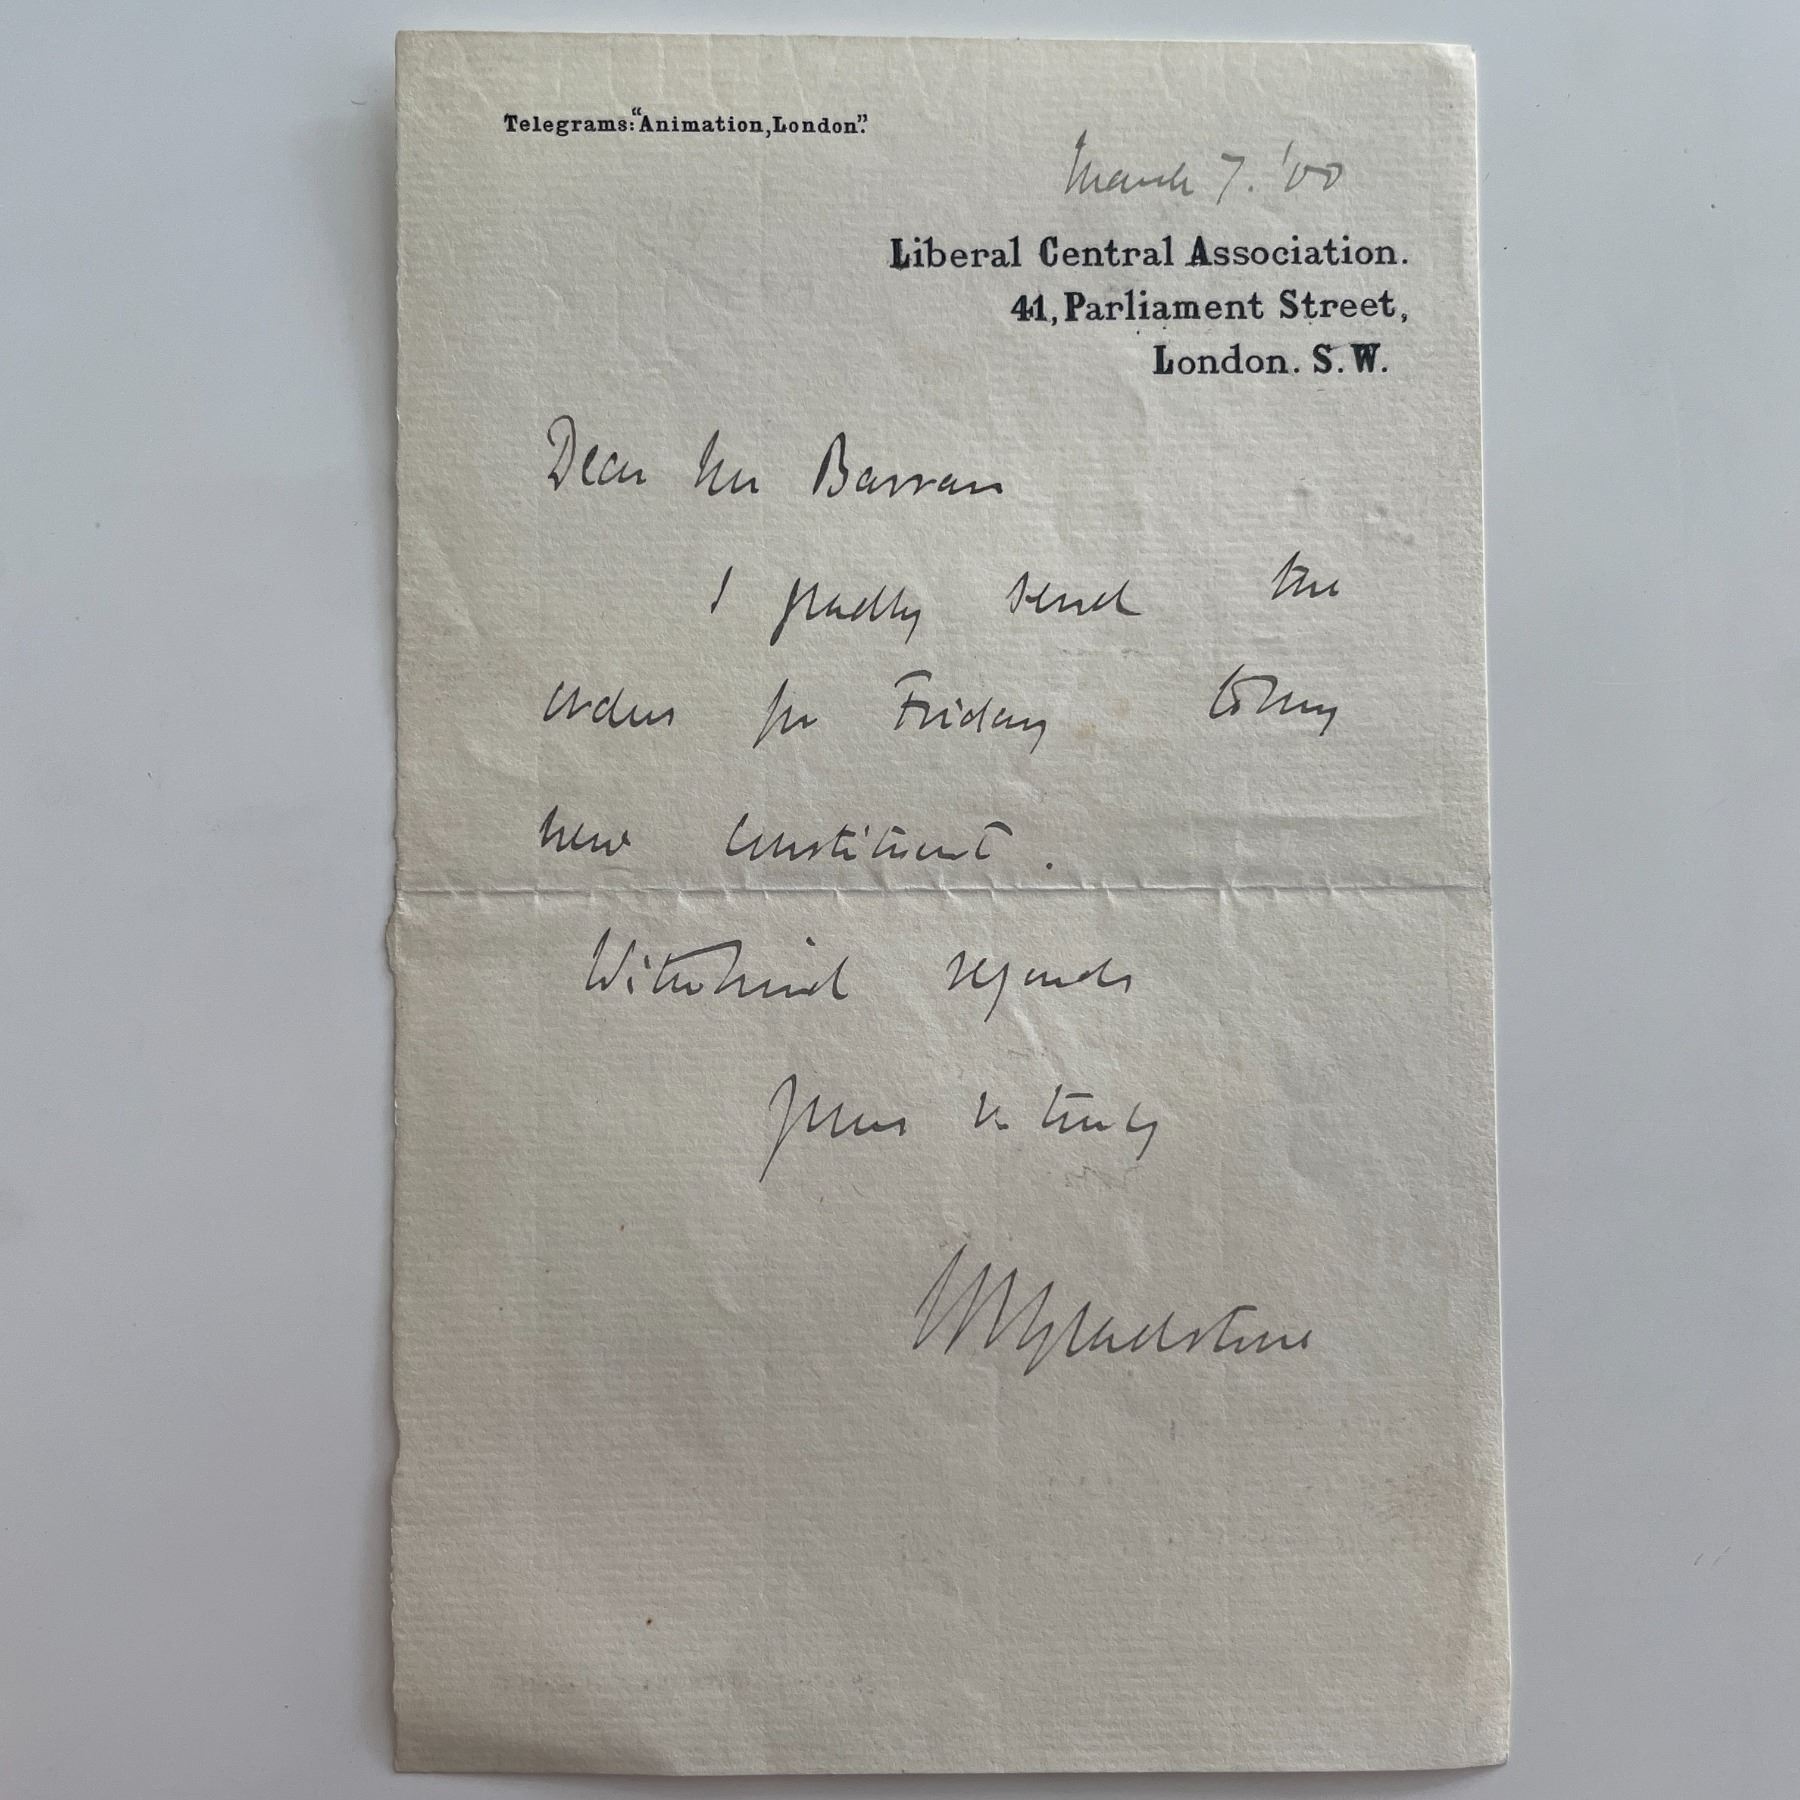 Telegrams: "Animation, London".
March 7. '00
Liberal Central Association.
41, Parliament Street,
London. S.W.
Dear Mr Barran
I gladly send the
orders for Friday to my
new constituent.
With kind regards
Yours v. truly
Gladstone